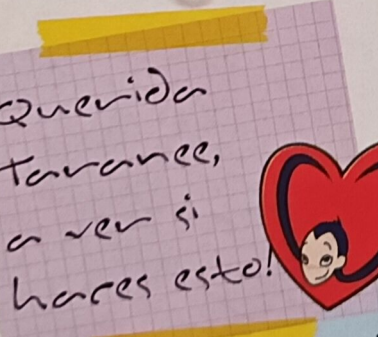 Querida
taranee,
a ver si
haces esto!